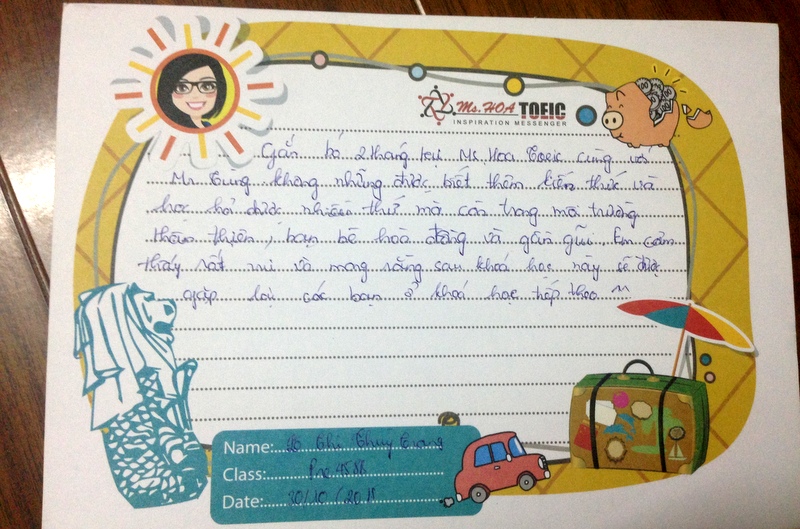 Ms. HOA TOEIC
INSPIRATION MESSENGER
Gắn bó 2 tháng tại Ms Hoa Toeic cùng với
Mr Tùng không những được biết thêm kiến thức và
học hỏi được nhiều thứ mà còn trong môi trường
thân thiện, bạn bè hoà đồng và gần gũi. Em cảm
thấy rất vui và mong rằng sau khoá học này sẽ được
gặp lại các bạn ở khoá học tiếp theo ^^
Name: Thị Thuỳ Trang
Class: Pre
Date: 20/10/2015